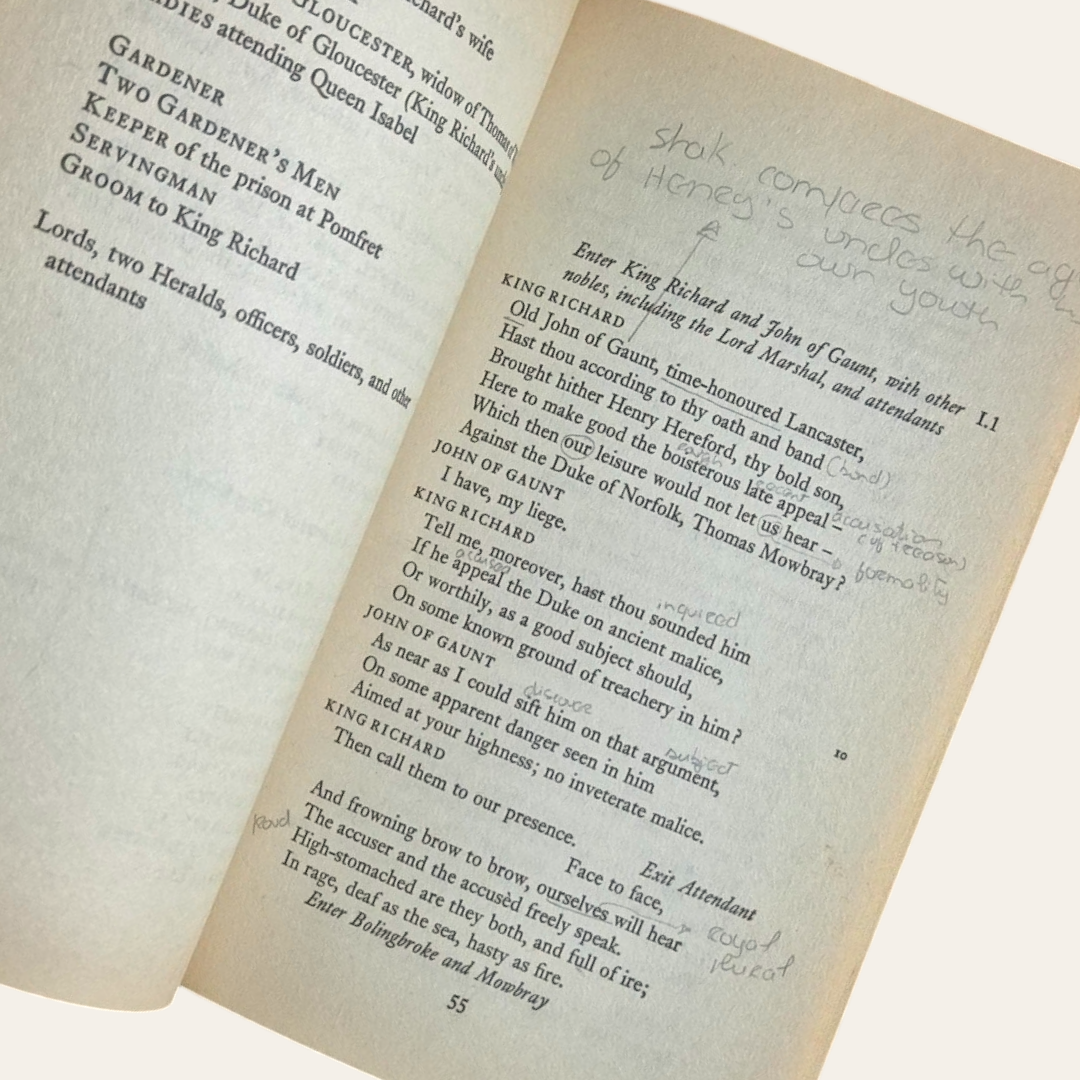 chard's wife
GLOUCESTER, widow of Thomas of
Duke of Gloucester (King Richard's
DIES attending Queen Isabel
GARDENER
TWO GARDENER'S MEN
KEEPER of the prison at Pomfret
SERVINGMAN
GROOM to King Richard
Lords, two Heralds, officers, soldiers, and other
attendants
shak. compares the ag
of Heneg's uncles with h
own youth
Enter King Richard and John of Gaunt, with other I.1
nobles, including the Lord Marshal, and attendants
KING RICHARD
Old John of Gaunt, time-honoured Lancaster,
Hast thou according to thy oath and band (bond)
Brought hither Henry Hereford, thy bold son,
Here to make good the boisterous late appeal – accusation
(of treason)
Which then our leisure would not let us hear – formality
Against the Duke of Norfolk, Thomas Mowbray?
JOHN OF GAUNT
I have, my liege.
KING RICHARD
inquired
Tell me, moreover, hast thou sounded him
accuse
If he appeal the Duke on ancient malice,
Or worthily, as a good subject should,
On some known ground of treachery in him?
JOHN OF GAUNT
discover
As near as I could sift him on that argument, 10
subject
On some apparent danger seen in him
Aimed at your highness; no inveterate malice.
KING RICHARD
Then call them to our presence.
Exit Attendant
Face to face,
And frowning brow to brow, ourselves will hear
royal
plural
The accuser and the accusèd freely speak.
proud
High-stomached are they both, and full of ire;
In rage, deaf as the sea, hasty as fire.
Enter Bolingbroke and Mowbray
55